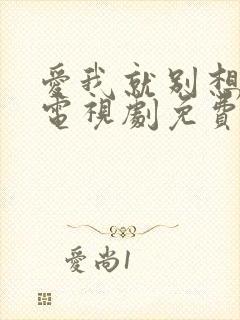 愛我就別想
電視劇免費
愛尚1